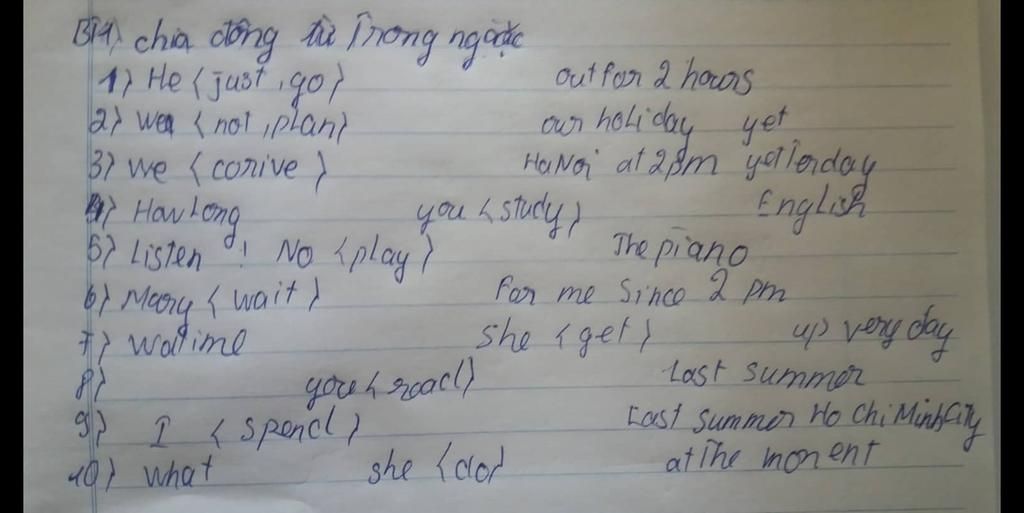 BT1) chia động từ Trong ngoặc
1) He (just, go) out for 2 hours
2) We (not, plan) our holiday yet
3) we (corive) HaNoi at 2pm yesterday
4) How Long you (study) English
5) Listen ! No (play) The piano
6) Mary (wait) for me Since 2 pm
7) watime She (get) up very day
8) you (road) Last summer
9) I (spend) Last summer Ho Chi Minh City
10) what she (do) at The moment